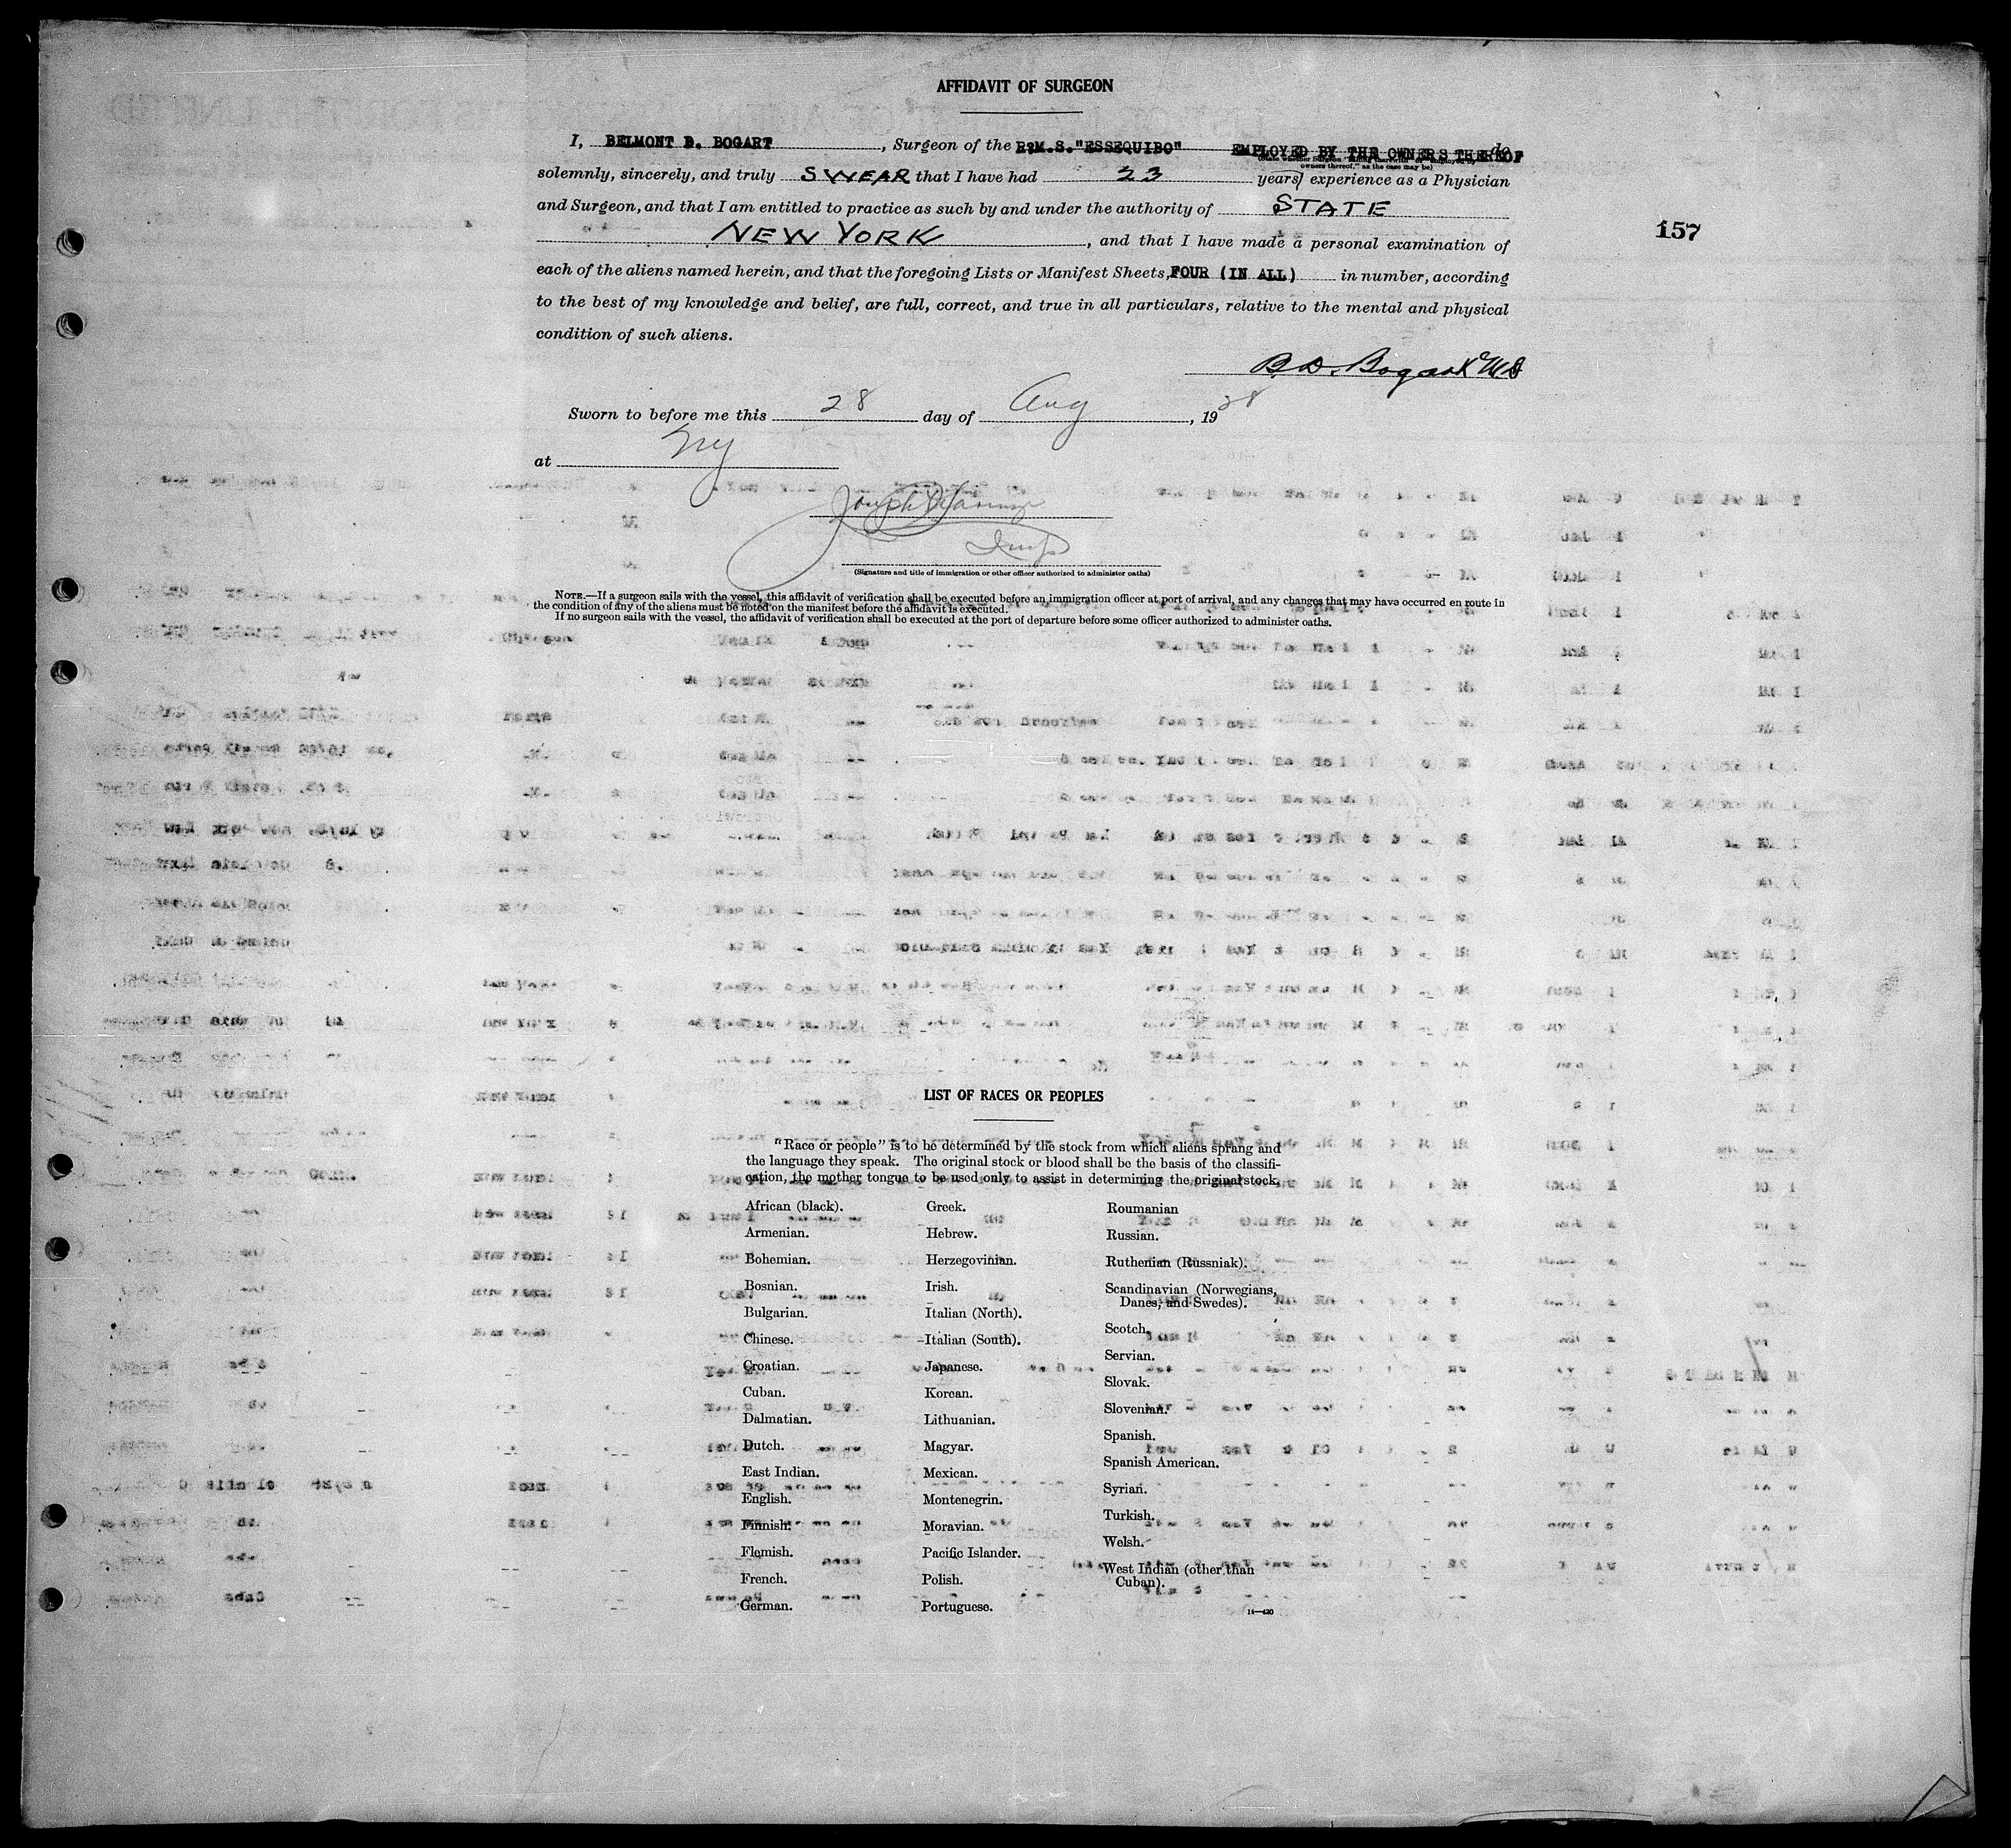 AFFIDAVIT OF SURGEON
I, BELMONT D. BOGART, Surgeon of the R.M.S. "ESSEQUIBO" EMPLOYED BY THE OWNERS THEREOF do
owners thereof," as the case may be)
solemnly, sincerely, and truly SWEAR that I have had 23 years' experience as a Physician
and Surgeon, and that I am entitled to practice as such by and under the authority of STATE
NEW YORK, and that I have made a personal examination of
157
each of the aliens named herein, and that the foregoing Lists or Manifest Sheets, FOUR (IN ALL) in number, according
to the best of my knowledge and belief, are full, correct, and true in all particulars, relative to the mental and physical
condition of such aliens.
B. D. Bogart MD
Sworn to before me this 28 day of Aug, 1928
at NY
Joseph
Insp
(Signature and title of immigration or other officer authorized to administer oaths)
NOTE.—If a surgeon sails with the vessel, this affidavit of verification shall be executed before an immigration officer at port of arrival, and any changes that may have occurred en route in
the condition of any of the aliens must be noted on the manifest before the affidavit is executed.
If no surgeon sails with the vessel, the affidavit of verification shall be executed at the port of departure before some officer authorized to administer oaths.
LIST OF RACES OR PEOPLES
"Race or people" is to be determined by the stock from which aliens sprang and
the language they speak. The original stock or blood shall be the basis of the classifi-
cation, the mother tongue to be used only to assist in determining the original stock.
African (black).
Armenian.
Bohemian.
Bosnian.
Bulgarian.
Chinese.
Croatian.
Cuban.
Dalmatian.
Dutch.
East Indian.
English.
Finnish.
Flemish.
French.
German.
Greek.
Hebrew.
Herzegovinian.
Irish.
Italian (North).
Italian (South).
Japanese.
Korean.
Lithuanian.
Magyar.
Mexican.
Montenegrin.
Moravian.
Pacific Islander.
Polish.
Portuguese.
Roumanian
Russian.
Ruthenian (Russniak).
Scandinavian (Norwegians,
Danes, and Swedes).
Scotch.
Servian.
Slovak.
Slovenian.
Spanish.
Spanish American.
Syrian.
Turkish.
Welsh.
West Indian (other than
Cuban).
14—420